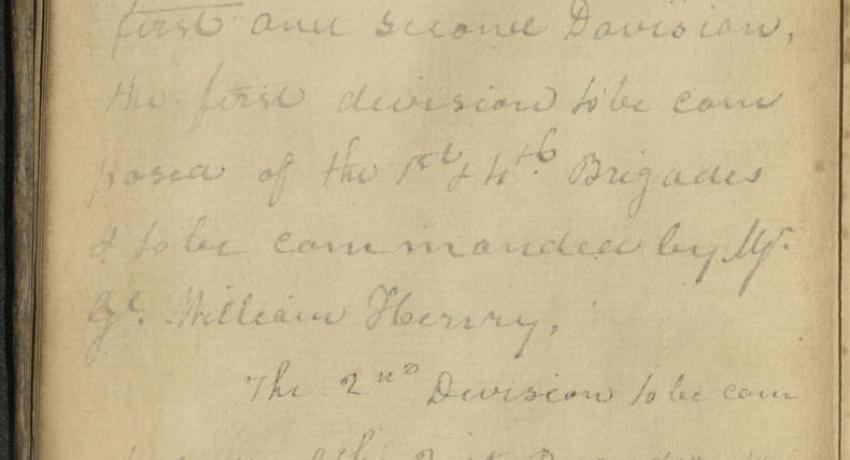 first and second Davision,
the first devision to be com
posed of the 1st & 4th. Brigades
& to be commanded by Mj.
Gl. William Henry,
The 2nd Devision to be com